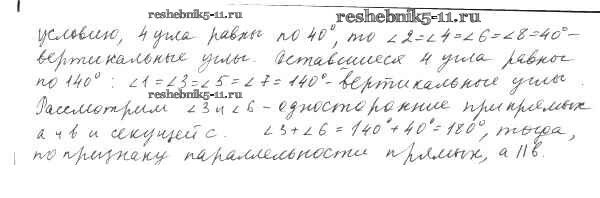 reshebnik5-11.ru
reshebnik5-11.ru
условию, 4 угла равны по 40°, то ∠2=∠4=∠6=∠8=40°-
вертикальные углы. Оставшиеся 4 угла равны
по 140° : ∠1=∠3=∠5=∠7=140°-вертикальные углы.
reshebnik5-11.ru
Рассмотрим ∠3 и ∠6 - односторонние при прямых
a и в и секущей c. ∠3+∠6=140°+40°=180°, тогда,
reshebnik5-11.ru
по признаку параллельности прямых, a || в.